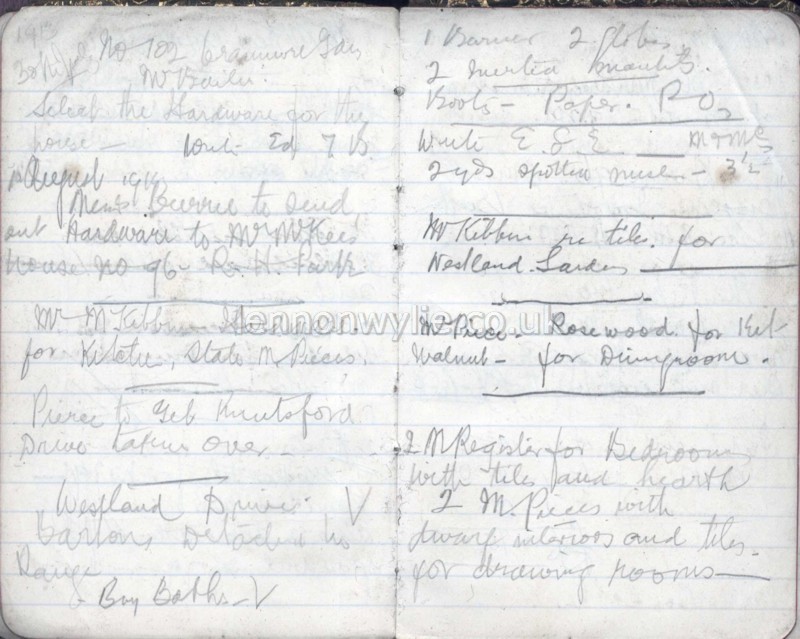 1913
No 102 Cranmore Gdns
Mr Bailie
Select the Hardware for the
house —
August 1914
to send
out Hardware to Mr McKees
house no 96 — R. H. Park
Mr McKibbin
for Kitchen, State M Pieces.
Pierce to Get Knutsford
Drive taken over —
Westland Drive. V
Bartons Detached no
Range
Buy Baths — V
1 Burner 2 globes
2 Inverted mantles.
Boots — Paper. P O,
Write E. & E
2 yds spotted muslin — 3½
Mr Kibbin re tiles. for
Westland Gardens
M Piece — Rosewood for Kit
Walnut — for Diningroom.
2 M Register for Bedrooms
with tiles and hearth
2 M. Pieces with
dwarf interiors and tiles
for drawing rooms —
lennonwylie.co.uk